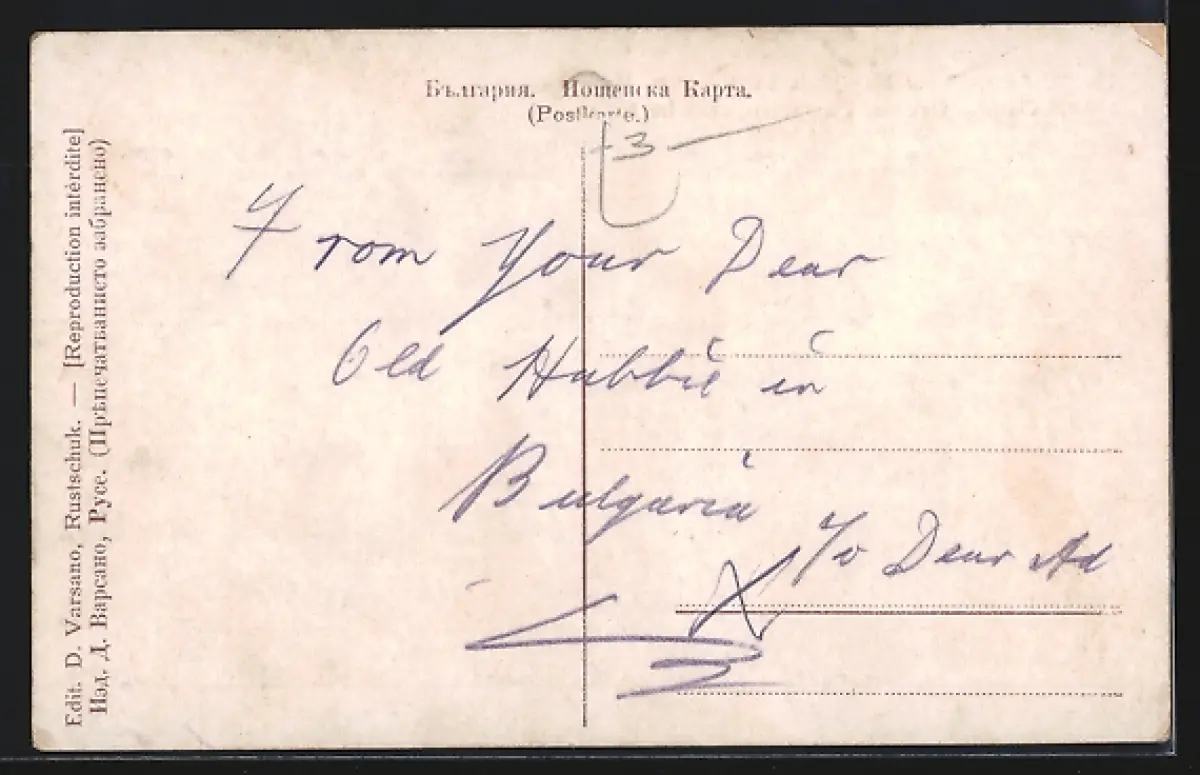 България. Пощенска Карта.
(Postkarte.)
3
From Your Dear
Old Hubbie in
Bulgaria
To Dear Ad
X
Edit. D. Varsano, Rustschuk. — [Reproduction intérdite]
Изд. Д. Варсано, Русе. (Прѣпечатванието забранено)